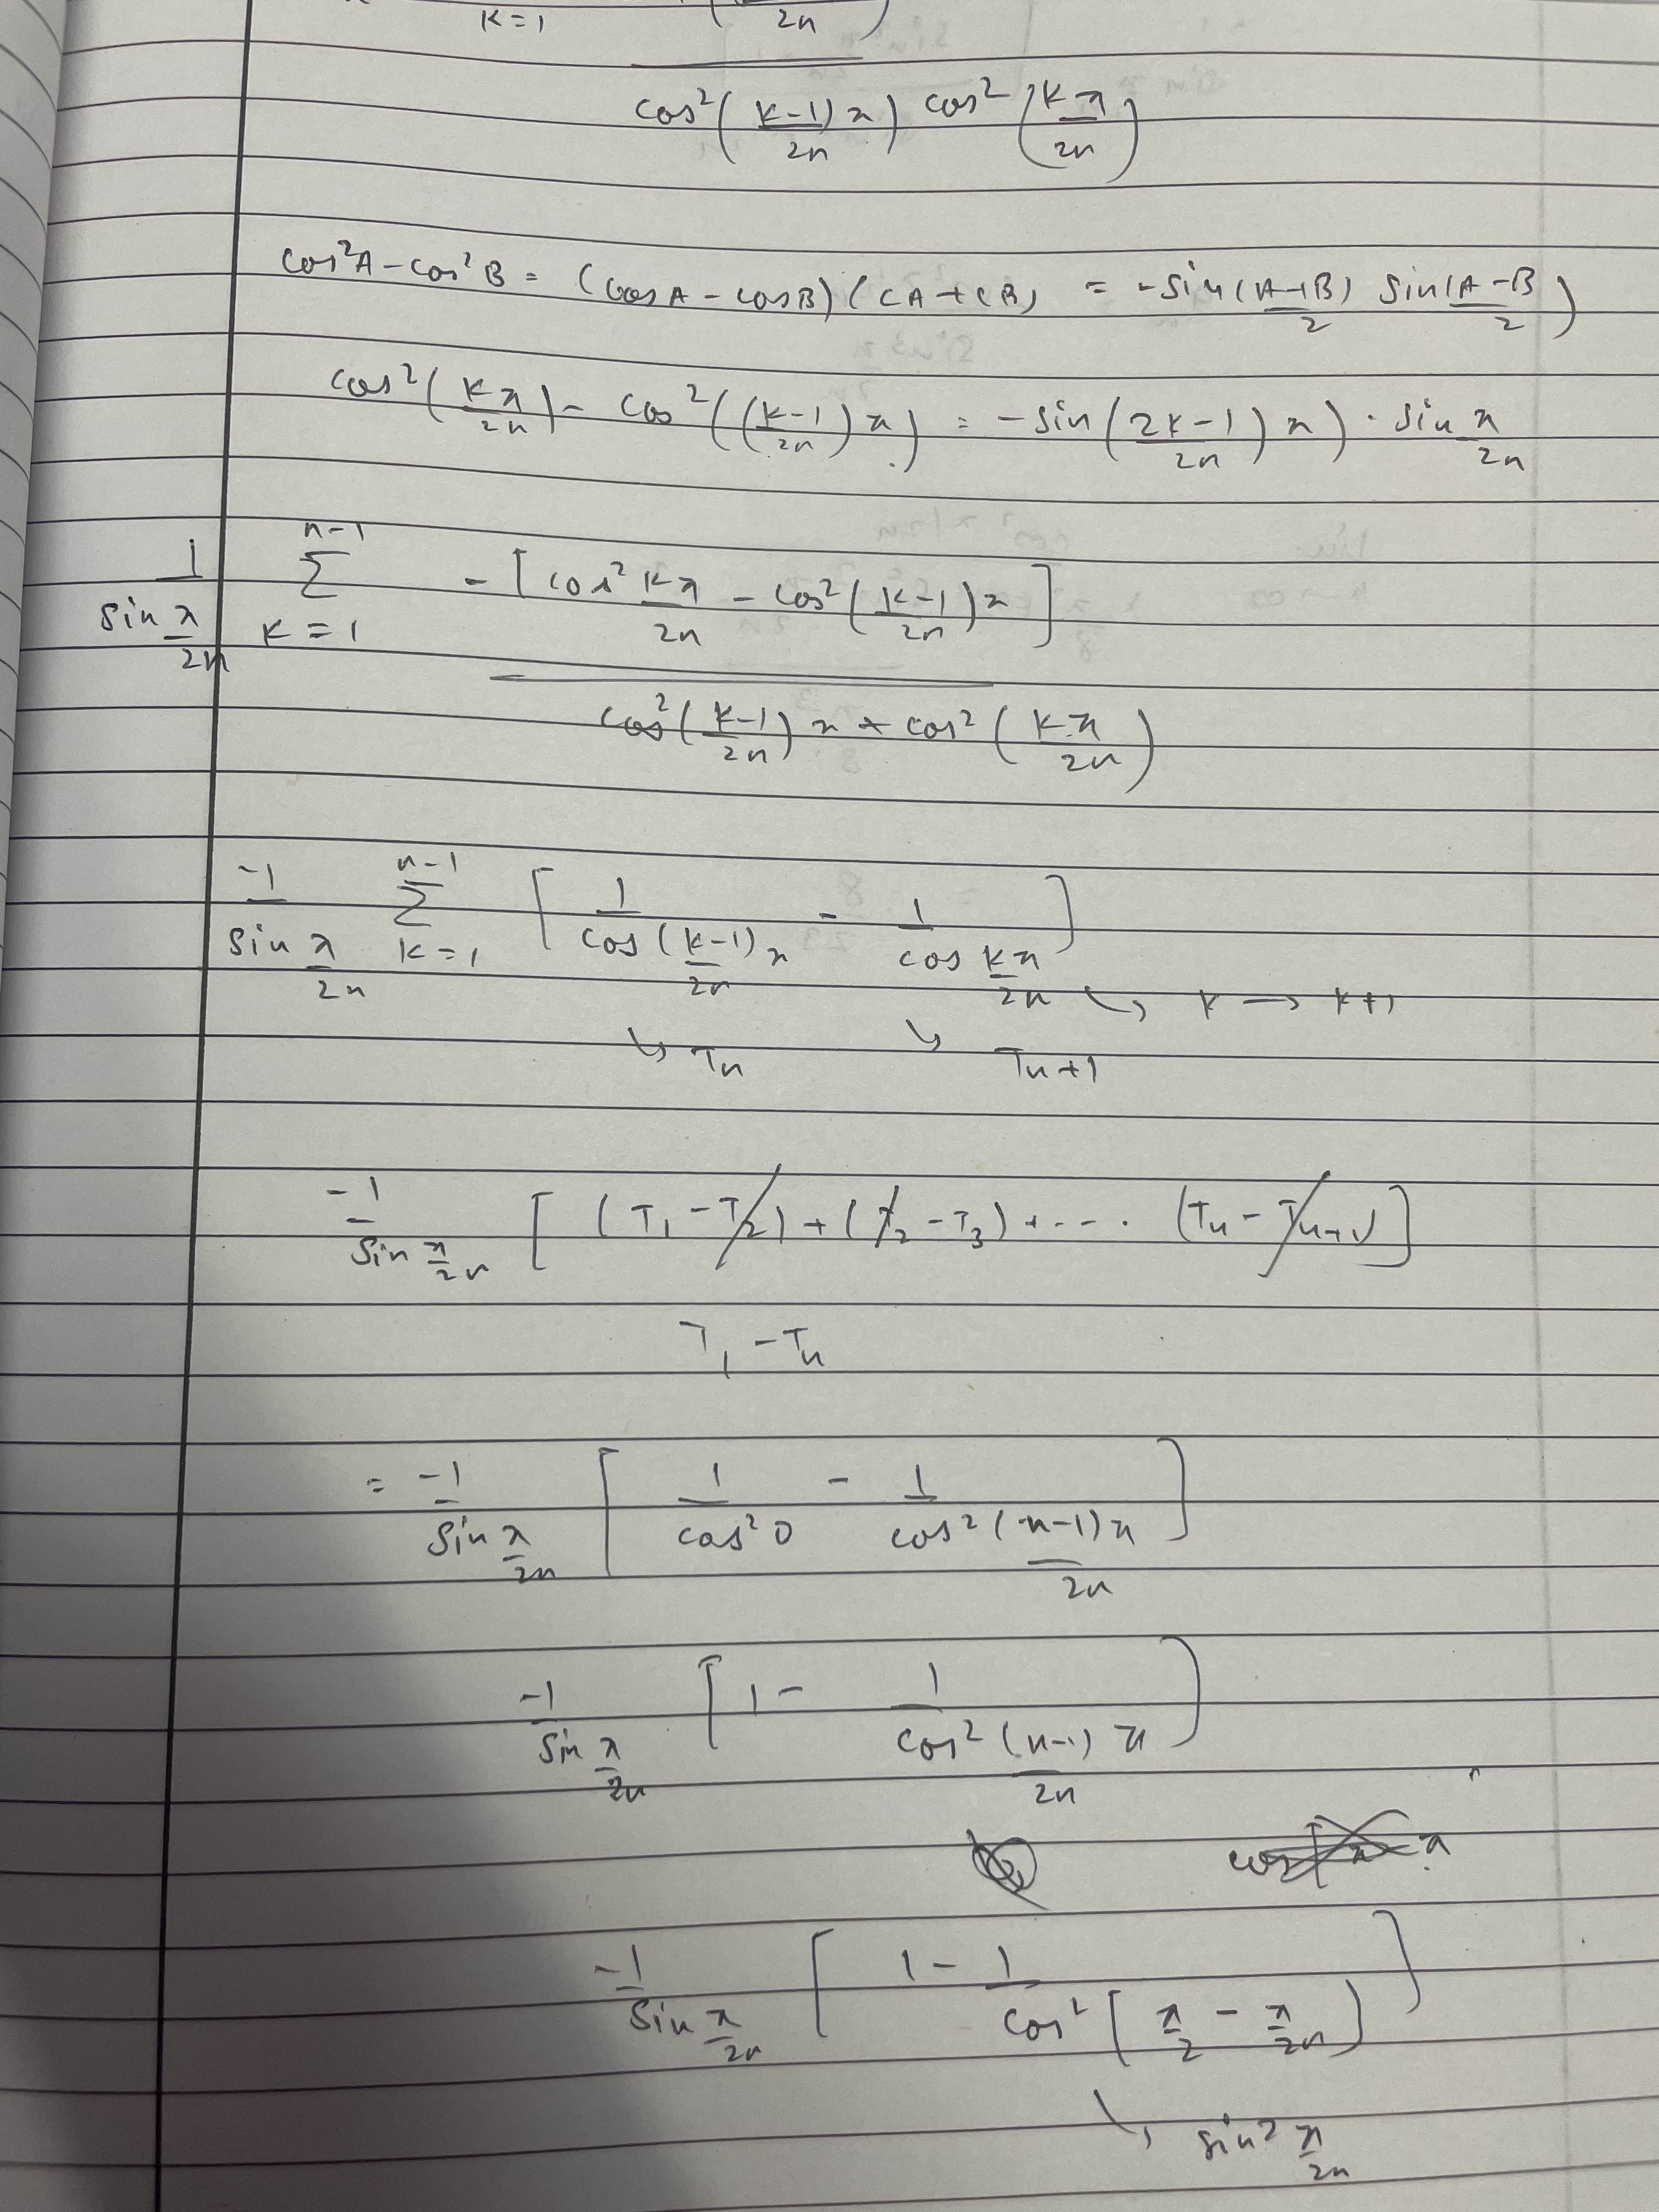 K=1 2n
cos²((K-1)π/2n) cos²(Kπ/2n)
cos²A - cos²B = (cosA - cosB)(CA + CB) = -sin(A+B)/2 sin(A-B/2)
cos²(Kπ/2n) - cos²((K-1/2n)π) = -sin(2K-1/2n)π) · sin π/2n
1/sin π/2n n-1 Σ K=1 -[cos² Kπ/2n - cos²(K-1/2n)π]
cos²(K-1/2n)π * cos²(Kπ/2n)
-1/sin π/2n n-1 Σ K=1 [1/cos(K-1/2n)π - 1/cos Kπ/2n]
↳ K → K+1
↳ Tn ↳ Tn+1
-1/sin π/2n [(T1 - T2) + (T2 - T3) + --- · (Tn - Tn+1)]
T1 - Tn
= -1/sin π/2n [1/cos²0 - 1/cos²(n-1)π/2n]
-1/sin π/2n [1 - 1/cos²(n-1)π/2n]
-1/sin π/2n [1 - 1/cos²[π/2 - π/2n)]
↳ sin² π/2n